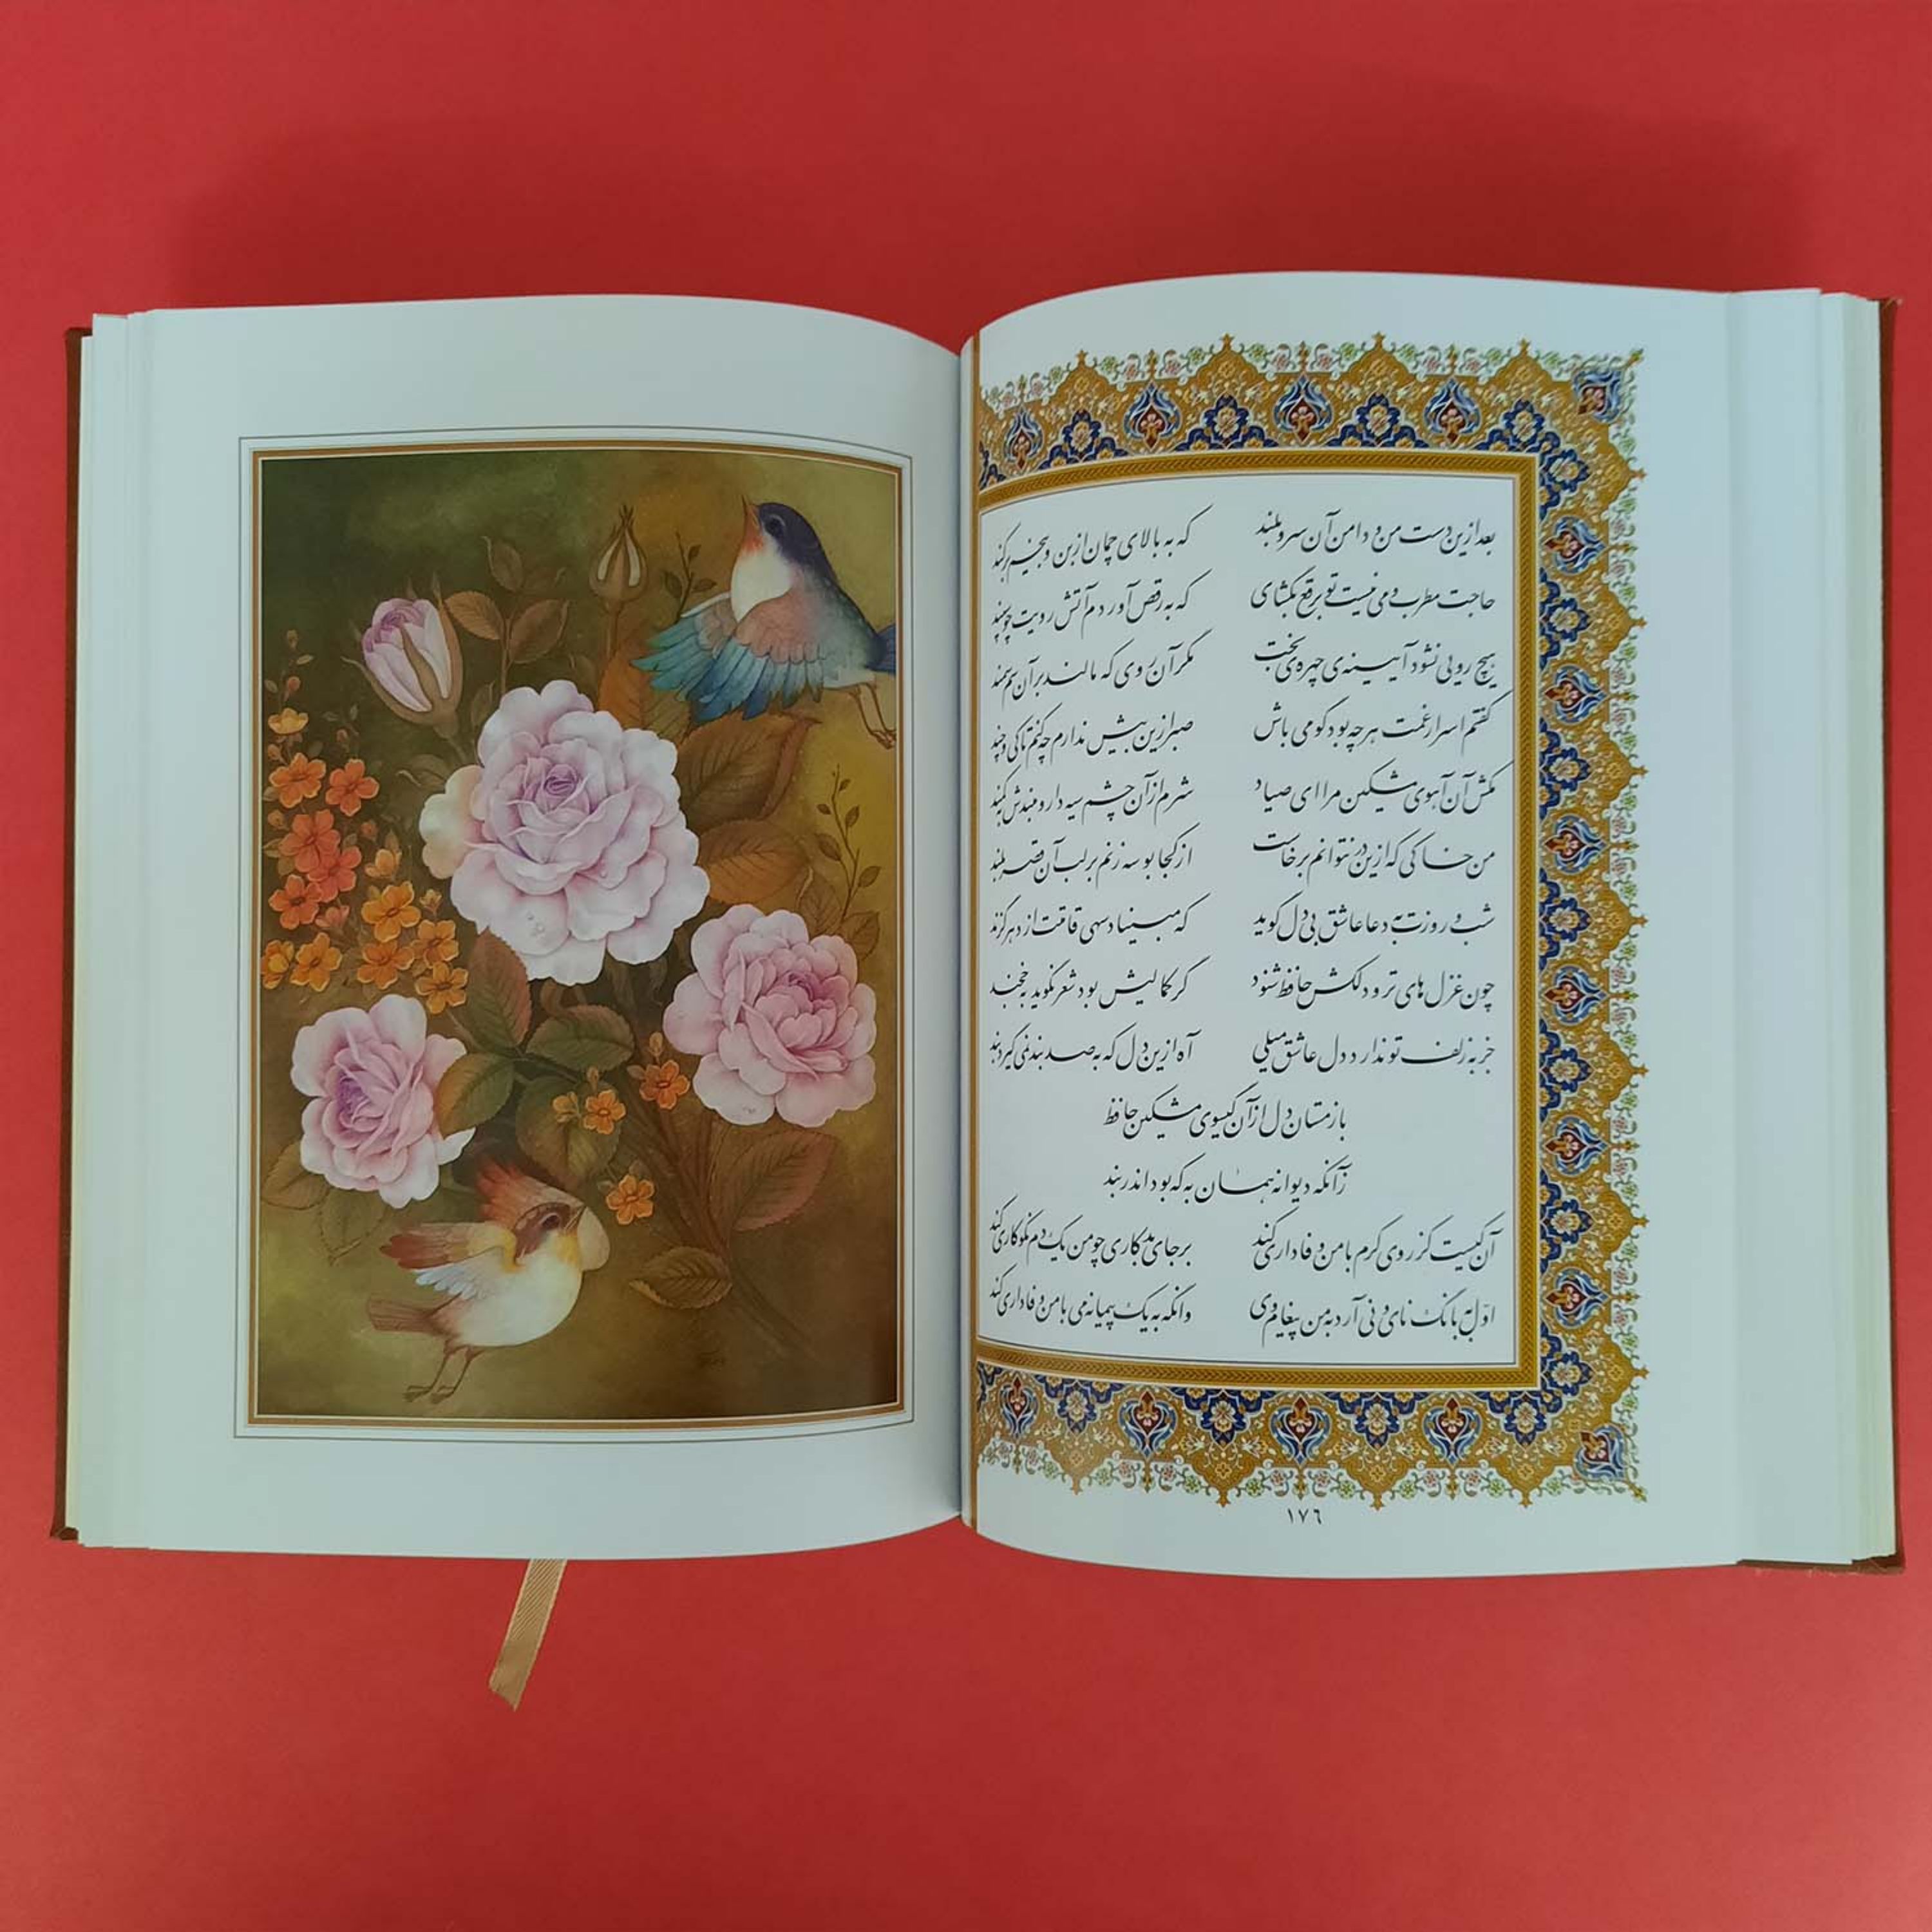 بعد ازین دست من و دامن آن سرو بلند که به بالای چمان از بن و بیخم برکند
حاجت مطرب و می نیست تو برقع بگشای که به رقص آوردم آتش رویت چو سپند
هیچ رویی نشود آیینه‌ی چهره‌ی بخت مگر آن روی که مالند بر آن سم سمند
گفتم اسرار غمت هر چه بود گو می باش صبر ازین بیش ندارم چه کنم تا کی و چند
مکش آن آهوی مشکین مرا ای صیاد شرم از آن چشم سیه دار و مبندش به کمند
من خاکی که ازین در نتوانم برخاست از کجا بوسه زنم بر لب آن قصر بلند
شب و روزت به دعا عاشق بی دل گوید که مبیناد سهی قامتت از دهر گزند
چون غزل های تر و دلکش حافظ شنود گر کمالیش بود شعر نگوید به خجند
جز به زلف تو ندارد دل عاشق میلی آه ازین دل که به صد بند نمی گیرد پند
باز مستان دل از آن گیسوی مشکین حافظ
زآنکه دیوانه همان به که بود اندر بند
آن کیست کز روی کرم با من وفاداری کند بر جای بدکاری چو من یک دم نکوکاری کند
اول به بانگ نای و نی آرد به من پیغام وی وانگه به یک پیمانه می با من وفاداری کند
۱۷۶